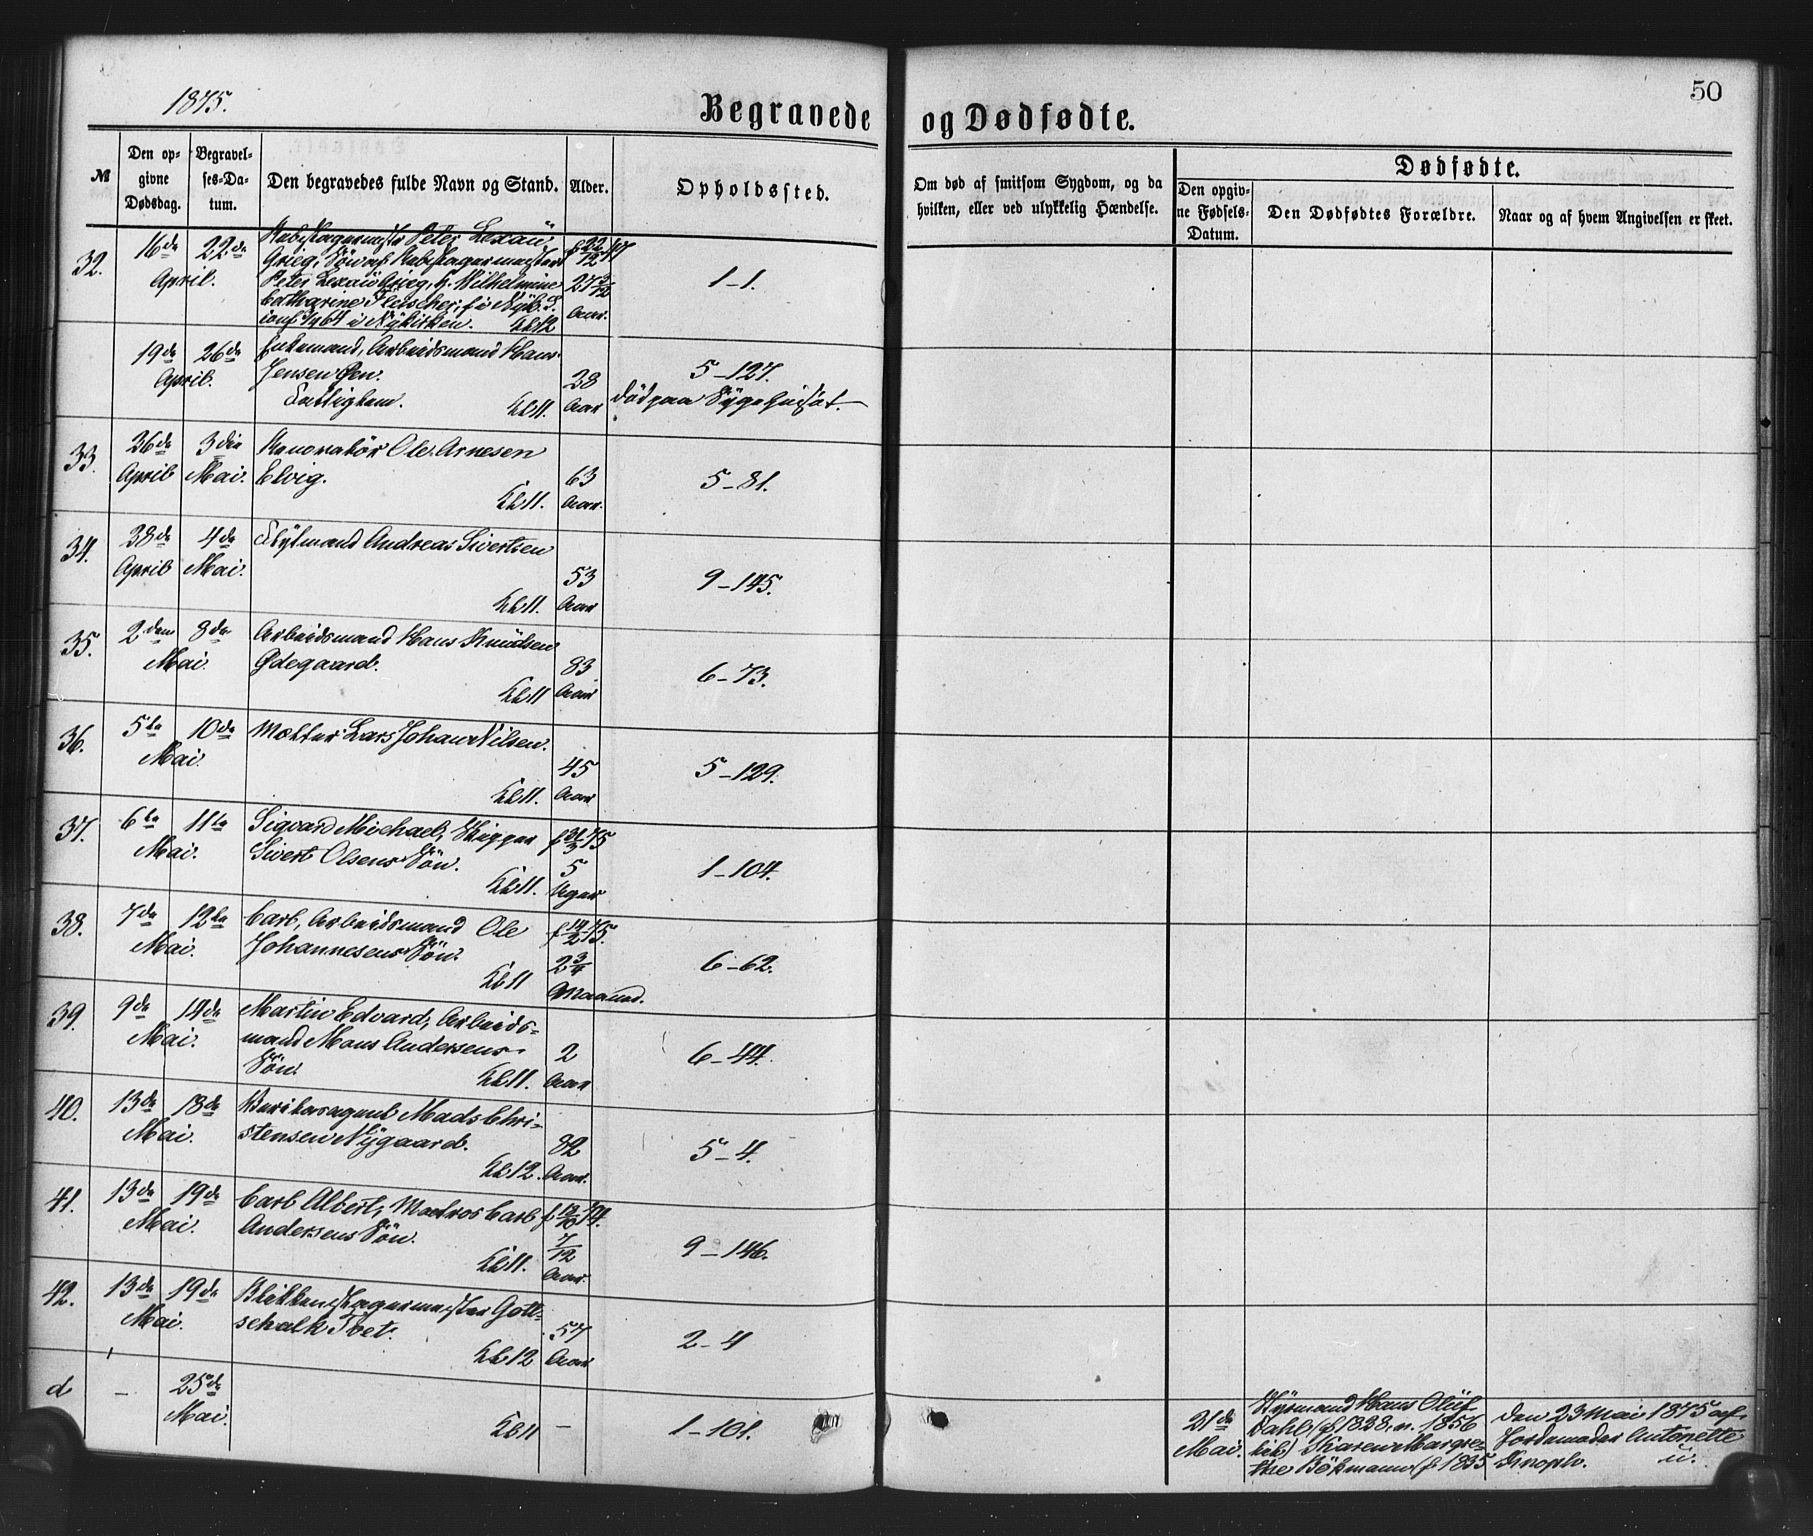 50
1875.
Begravede og Dødfødte.
№
Den op-
givne
Dødsdag.
Begravel-
ses-Da-
tum.
Den begravedes fulde Navn og Stand.
Alder.
Opholdssted.
Om død af smitsom Sygdom, og da
hvilken, eller ved ulykkelig Hændelse.
Dødfødte.
Den opgiv-
ne Fødsels-
Datum.
Den Dødfødtes Forældre.
Naar og af hvem Angivelsen er skeet.
32.
16de 22de
April.
Rebslagermester Peter Lexau
Grieg, Søn af Rebslagermester
Peter Lexau Grieg, h. Wilhelmine
Catharine Fleischer, f. i Nyk. S.
conf. 1/64 i Nykirken. Kl 12
f 22/12 47
27 3/12
Aar.
1-1.
19de 26de
April.
Enkemand, Arbeidsmand Hans
Jensen
Fattiglem. Kl 11.
38
Aar
5-127.
død paa Sygehuset.
33.
26de
April
3die
Mai.
Renovatør Ole Arnesen
Elvig.
Kl 11.
63
Aar.
5-81.
34.
28de
April
4de
Mai.
Flytmand Andreas Sivertsen
Kl 11.
53
Aar
9-145.
35.
2den 8de
Mai.
Arbeidsmand Hans Knudsen
Ødegaard.
Kl 11
83
Aar
6-73.
36.
5te 10de
Mai.
Mægler Lars Johan Nilsen.
Kl 11.
45
Aar
5-129.
37.
6te 11te
Mai.
Sigvard Michael, Skipper
Sivert Olsens Søn.
Kl 11.
f 31/3 75
5
Uger
1-104.
38.
7de 12te
Mai.
Carl, Arbeidsmand Ole
Johannesens Søn.
Kl 11
f 14/2 75.
2 3/4
Maaned.
6-62.
39.
9de 14de
Mai.
Martin Edvard, Arbeids-
mand Mons Andersens
Søn.
Kl 11.
2
Aar
6-44.
40.
13de 18de
Mai.
Mads Chri-
stensen Nygaard.
Kl 12.
82
Aar.
5-4.
41.
13de 19de
Mai.
Carl Albert, Matros Carl
Andersens Søn.
Kl 11.
f 12/10 74.
7/12
Aar.
9-146.
42.
13de 19de
Mai.
Blikkenslagermester Gott-
schalk Tvet.
Kl 12
57
Aar
2-4
d
-
25de
Mai.
Kl 11
-
1-101.
21de
Mai.
Styrmand Hans Oluf
Dahl (f 1828, v. 1856
Karen Margre-
the Bøkmann (f 1835
Den 23 Mai 1875 af
Jordemoder Antonette
Knoph. u.